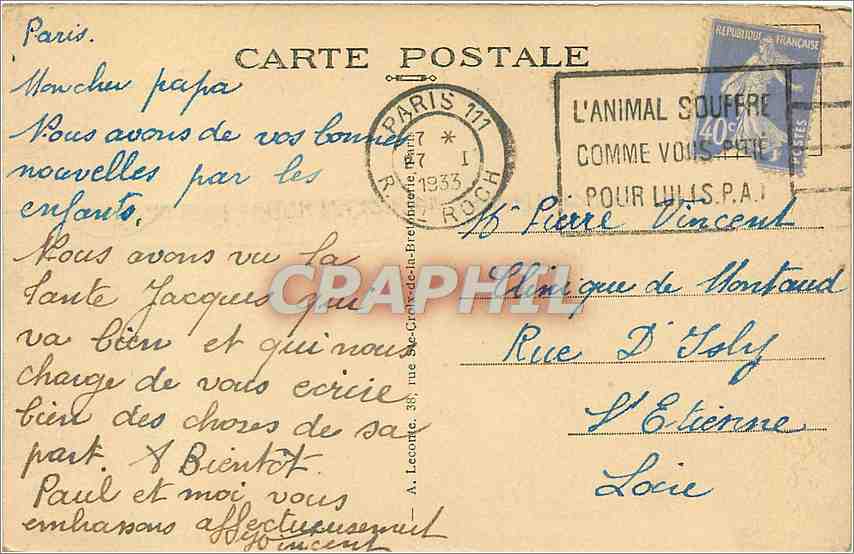 Paris.
CARTE POSTALE
Mon cher papa
Nous avons de vos bonnes
nouvelles par les
enfants.
Nous avons vu la
tante Jacques qui
va bien et qui nous
charge de vous ecrire
bien des choses de sa
part. A Bientôt.
Paul et moi, vous
embrassons affectueusement
Vincent
A. Leconte, 38, rue Ste-Croix-de-la-Bretonnerie, Paris
PARIS 111
7 *
7 I
1933
R. ROCH
REPUBLIQUE FRANÇAISE
40c
POSTES
L'ANIMAL SOUFFRE
COMME VOUS. PITIÉ
POUR LUI. (S.P.A.)
Mr Pierre Vincent
Clinique de Montaud
Rue D'Isly
St Etienne
Loire
CRAPHIL